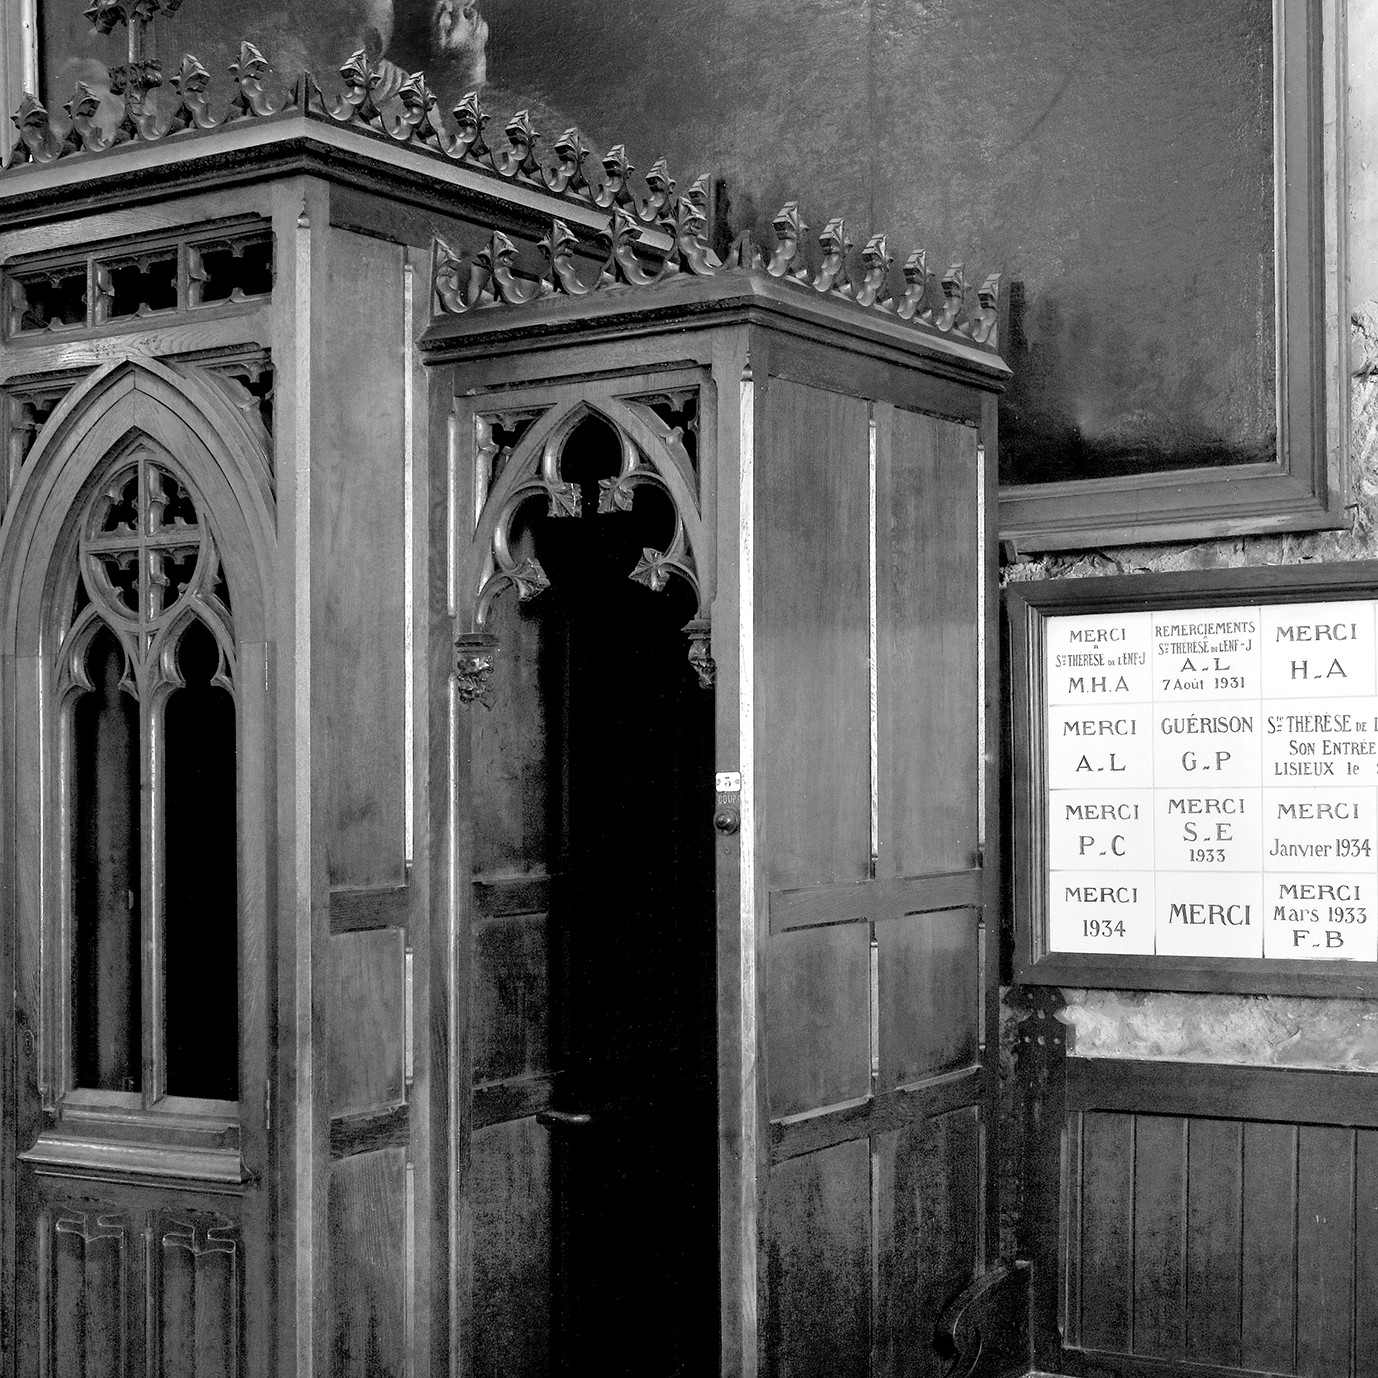 MERCI
à
STE THÉRÈSE DE L'ENF-J
M.H.A
REMERCIEMENTS
à
STE THÉRÈSE DE L'ENF-J
A-L
7 Août 1931
MERCI
H-A
MERCI
A-L
GUÉRISON
G-P
STE THÉRÈSE DE
SON ENTRÉE
LISIEUX le
MERCI
P-C
MERCI
S-E
1933
MERCI
Janvier 1934
MERCI
1934
MERCI
MERCI
Mars 1933
F-B